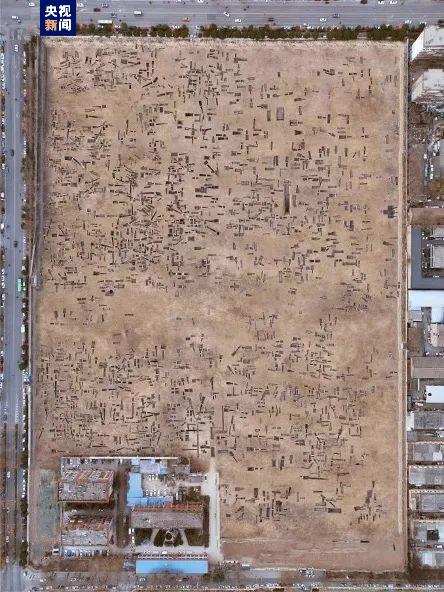 央视
新闻